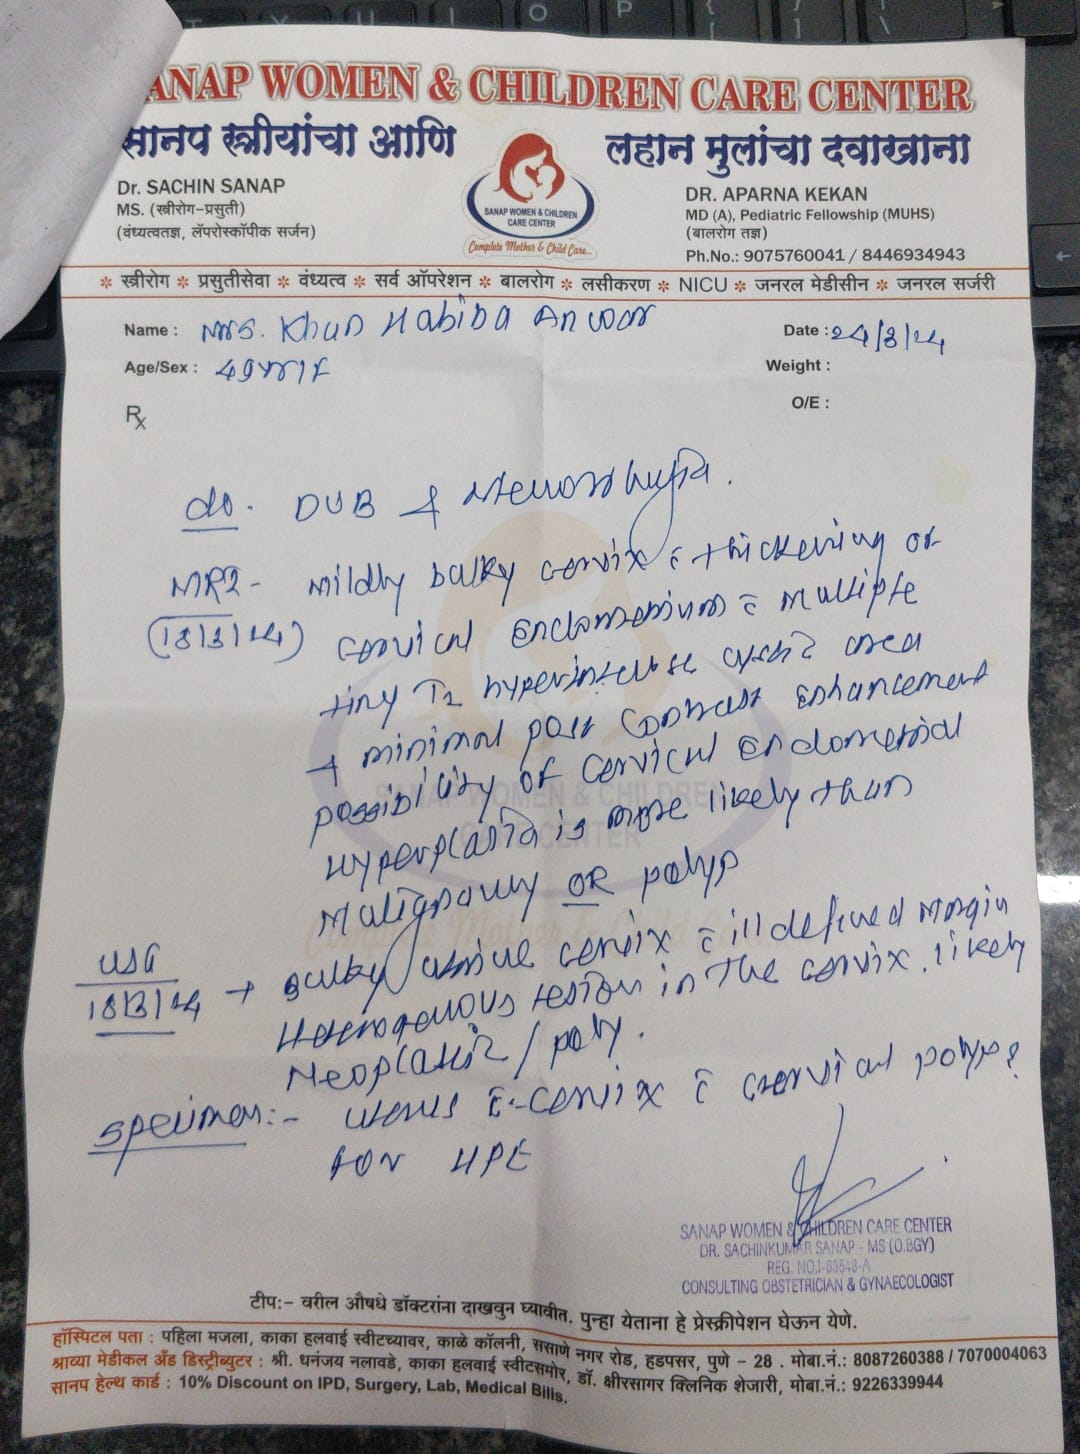 SANAP WOMEN & CHILDREN CARE CENTER
सानप स्त्रीयांचा आणि लहान मुलांचा दवाखाना
SANAP WOMEN & CHILDREN
CARE CENTER
Complete Mother & Child Care...
Dr. SACHIN SANAP
MS. (स्त्रीरोग-प्रसुती)
(वंध्यत्वतज्ञ, लॅपरोस्कॉपीक सर्जन)
DR. APARNA KEKAN
MD (A), Pediatric Fellowship (MUHS)
(बालरोग तज्ञ)
Ph.No.: 9075760041 / 8446934943
* स्त्रीरोग * प्रसुतीसेवा * वंध्यत्व * सर्व ऑपरेशन * बालरोग * लसीकरण * NICU * जनरल मेडीसीन * जनरल सर्जरी
Name : Mrs. Khan Habiba Anwar
Date : 24/3/24
Age/Sex : 49yrs/F
Weight :
O/E :
Rx
c/o. DUB & Menorrhagia.
MRI - Mildly bulky cervix c̄ thickening of
(18/3/24) cervical Endometrium c̄ multiple
tiny T2 hyperintense cystic area
& minimal post contrast enhancement
possibility of cervical Endometrial
Hyperplasia is more likely than
Malignancy OR polyp
USG
18/3/24 → Bulky uterine cervix c̄ ill defined margin
Heterogenous lesion in the cervix. likely
Neoplastic / poly.
Specimen:- Uterus c̄ cervix c̄ cervical polyp?
for HPE
SANAP WOMEN & CHILDREN CARE CENTER
DR. SACHINKUMAR SANAP - MS (O.BGY)
REG. NO.
CONSULTING OBSTETRICIAN & GYNAECOLOGIST
टीप:- वरील औषधे डॉक्टरांना दाखवुन घ्यावीत. पुन्हा येताना हे प्रेस्क्रीपेशन घेऊन येणे.
हॉस्पिटल पता : पहिला मजला, काका हलवाई स्वीटच्यावर, काळे कॉलनी, ससाणे नगर रोड, हडपसर, पुणे - 28 . मोबा.नं.: 8087260388 / 7070004063
श्राव्या मेडीकल अँड डिस्ट्रीब्युटर : श्री. धनंजय नलावडे, काका हलवाई स्वीटसमोर, डॉ. क्षीरसागर क्लिनिक शेजारी, मोबा.नं.: 9226339944
सानप हेल्थ कार्ड : 10% Discount on IPD, Surgery, Lab, Medical Bills.